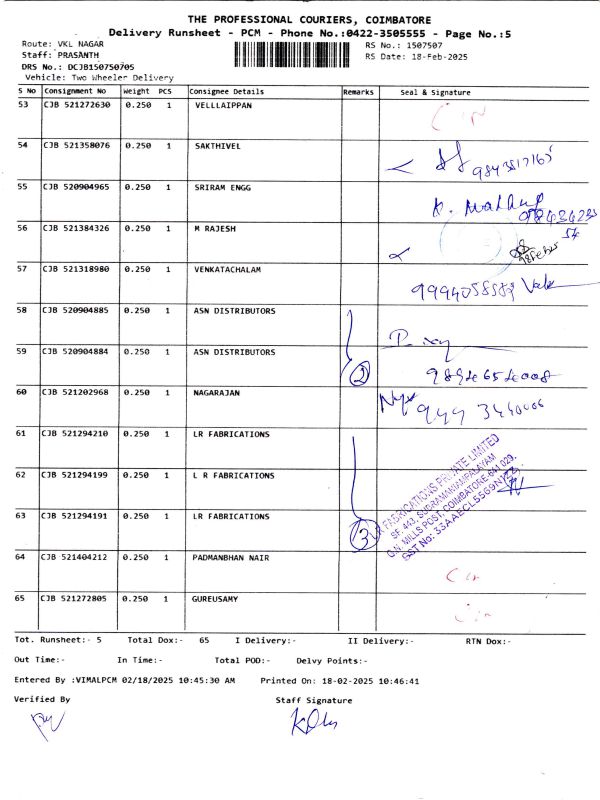 THE PROFESSIONAL COURIERS, COIMBATORE
Delivery Runsheet - PCM - Phone No.:0422-3505555 - Page No.:5
Route: VKL NAGAR
RS No.: 1507507
Staff: PRASANTH
RS Date: 18-Feb-2025
DRS No.: DCJB150750705
Vehicle: Two Wheeler Delivery
S No Consignment No Weight PCS Consignee Details Remarks Seal & Signature
53 CJB 521272630 0.250 1 VELLLAIPPAN
54 CJB 521358076 0.250 1 SAKTHIVEL
55 CJB 520904965 0.250 1 SRIRAM ENGG
56 CJB 521384326 0.250 1 M RAJESH
57 CJB 521318980 0.250 1 VENKATACHALAM
58 CJB 520904885 0.250 1 ASN DISTRIBUTORS
59 CJB 520904884 0.250 1 ASN DISTRIBUTORS
2
60 CJB 521202968 0.250 1 NAGARAJAN
61 CJB 521294210 0.250 1 LR FABRICATIONS
62 CJB 521294199 0.250 1 L R FABRICATIONS
63 CJB 521294191 0.250 1 LR FABRICATIONS
3
FABRICATIONS PRIVATE LIMITED
G.N. MILLS POST, COIMBATORE-641 029.
64 CJB 521404212 0.250 1 PADMANBHAN NAIR
65 CJB 521272805 0.250 1 GUREUSAMY
Tot. Runsheet:- 5 Total Dox:- 65 I Delivery:- II Delivery:- RTN Dox:-
Out Time:- In Time:- Total POD:- Delvy Points:-
Entered By :VIMALPCM 02/18/2025 10:45:30 AM Printed On: 18-02-2025 10:46:41
Verified By Staff Signature